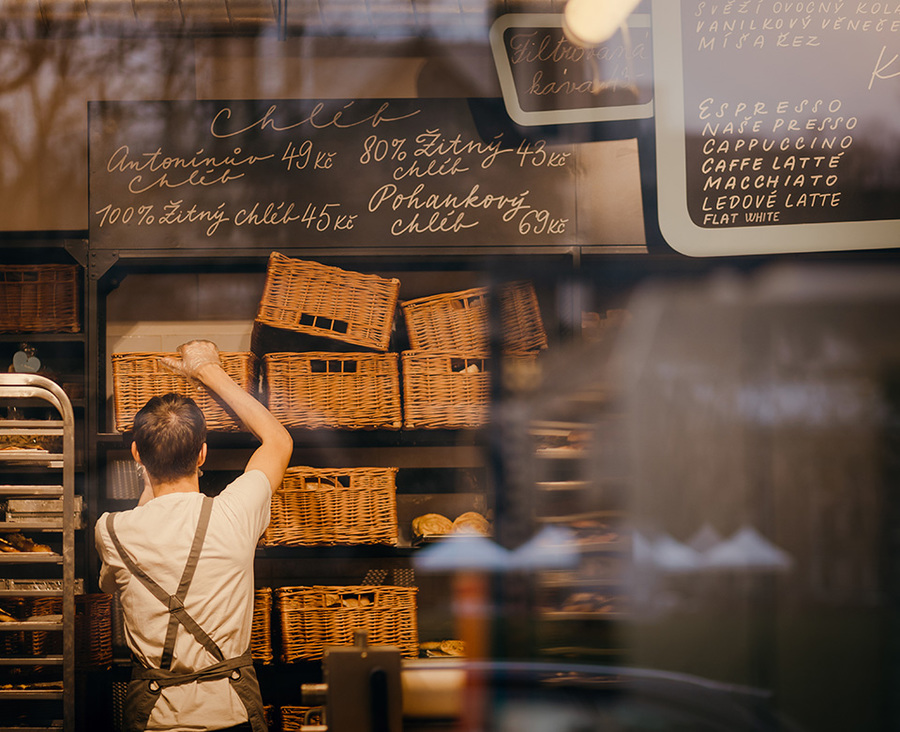 Chléb
Antonínův 49Kč
Chléb
100% Žitný Chléb 45Kč
80% Žitný 43Kč
chléb
Pohankový
chléb 69Kč
Filtrovaná
káva
SVĚŽÍ OVOCNÝ KOLÁ
VANILKOVÝ VĚNEČE
MÍŠA ŘEZ
K
ESPRESSO
NAŠE PRESSO
CAPPUCCINO
CAFFE LATTÉ
MACCHIATO
LEDOVÉ LATTE
FLAT WHITE